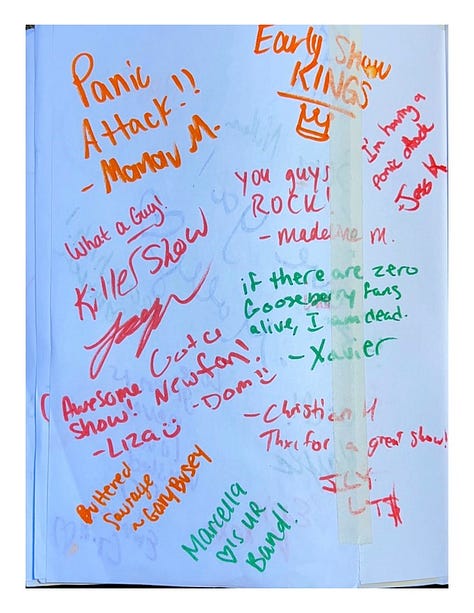 Panic
Attack!!
- Mamaw M.
Early Show
KINGS
I'm having a
panic attack
- Jess K
you guys
ROCK!
- Madeline M.
What a Guy!
Killer Show
if there are zero
Gooseberry fans
alive, I am dead.
- Xavier
Gotcu
New fan!
- Dom
Awesome
Show!
- Liza
- Christian H
Thx for a great show!
ILY
Buttered
Sausage
~ Gary Busey
Marcella
♡is ur
Band!